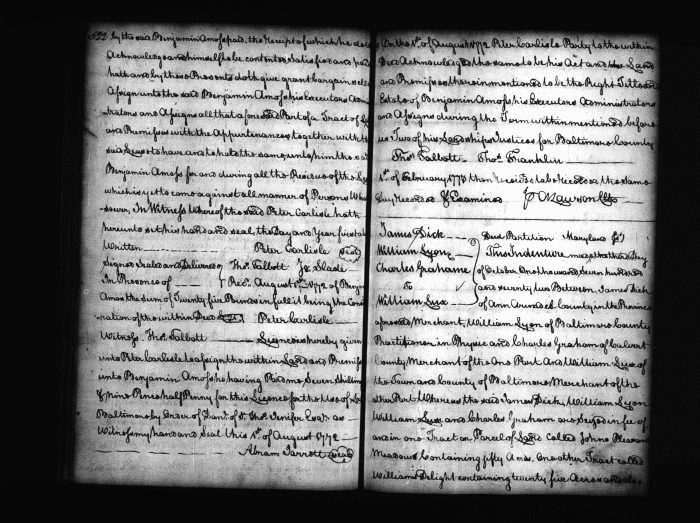 by the said Benjamin Amos paid, the receipt of which he doth
Acknowledge and himself to be contented Satisfied and paid
hath and by these Presents doth give grant bargain sell and
Assign unto the said Benjamin Amos his Executors Adminis
trators and Assigns all that aforesaid Part of a Tract of Land
and Premises with the Appurtenances together with the
said Lease to have and to hold the same unto him the said
Benjamin Amos for and during all the Residue of the Lease
which is yet to come against all manner of Persons What
soever. In Witness Whereof the said Peter Carlisle hath
hereunto set his hand and seal, the Day and Year first above
Written Peter Carlisle (seal)
Signed Seald and Delivered Thos. Talbott Slade
In Presence of Recd. August 1st. 1772 of Benjn
Amos the sum of Twenty five Pounds in full it being the Consi
ration of the within Deed Peter Carlisle
Witness Thos. Talbott License is hereby given
unto Peter Carlisle to assign the within Land and Premises
unto Benjamin Amos he having Paid me Seven Shillings
& nine Pence half Penny for this License for the Use of
Baltimore by Order of Danl. of St. Thos. Jenifer Esqr. as
Witness my hand and Seal this 1st. of August 1772
Abram Jarrott (seal)
On the 1st. of August 1772 Peter Carlisle Party to the within
Deed Acknowledged the same to be his Act and the Land
and Premises therein mentioned to be the Right Title and
Estate of Benjamin Amos his Executors Administrators
and Assigns during the Term within mentioned before
us Two of his Lordships Justices for Baltimore County
Thos. Talbott Thos. Franklin
1st. of February 1773 then Received to be Recorded the same
Day Recorded & Examined Lawson Clk
James Dick Deed Partition Maryland
William Lyon This Indenture made this Day
Charles Grahame of October One thousand Seven hundred
to and seventy two Between James Dick
William Lux of Ann Arundel County in the Province
aforesaid Merchant, William Lyon of Baltimore County
Practitioner in Physic and Charles Graham of Calvert
County Merchant of the One Part And William Lux of
the Town and County of Baltimore Merchant of the
other Part Whereas the said James Dick, William Lyon
William Lux and Charles Graham are Seized in fee of
and in one Tract or Parcel of Land Called Johns Pleasant
Meadows Containing fifty Acres One other Tract called
Williams Delight containing twenty five Acres